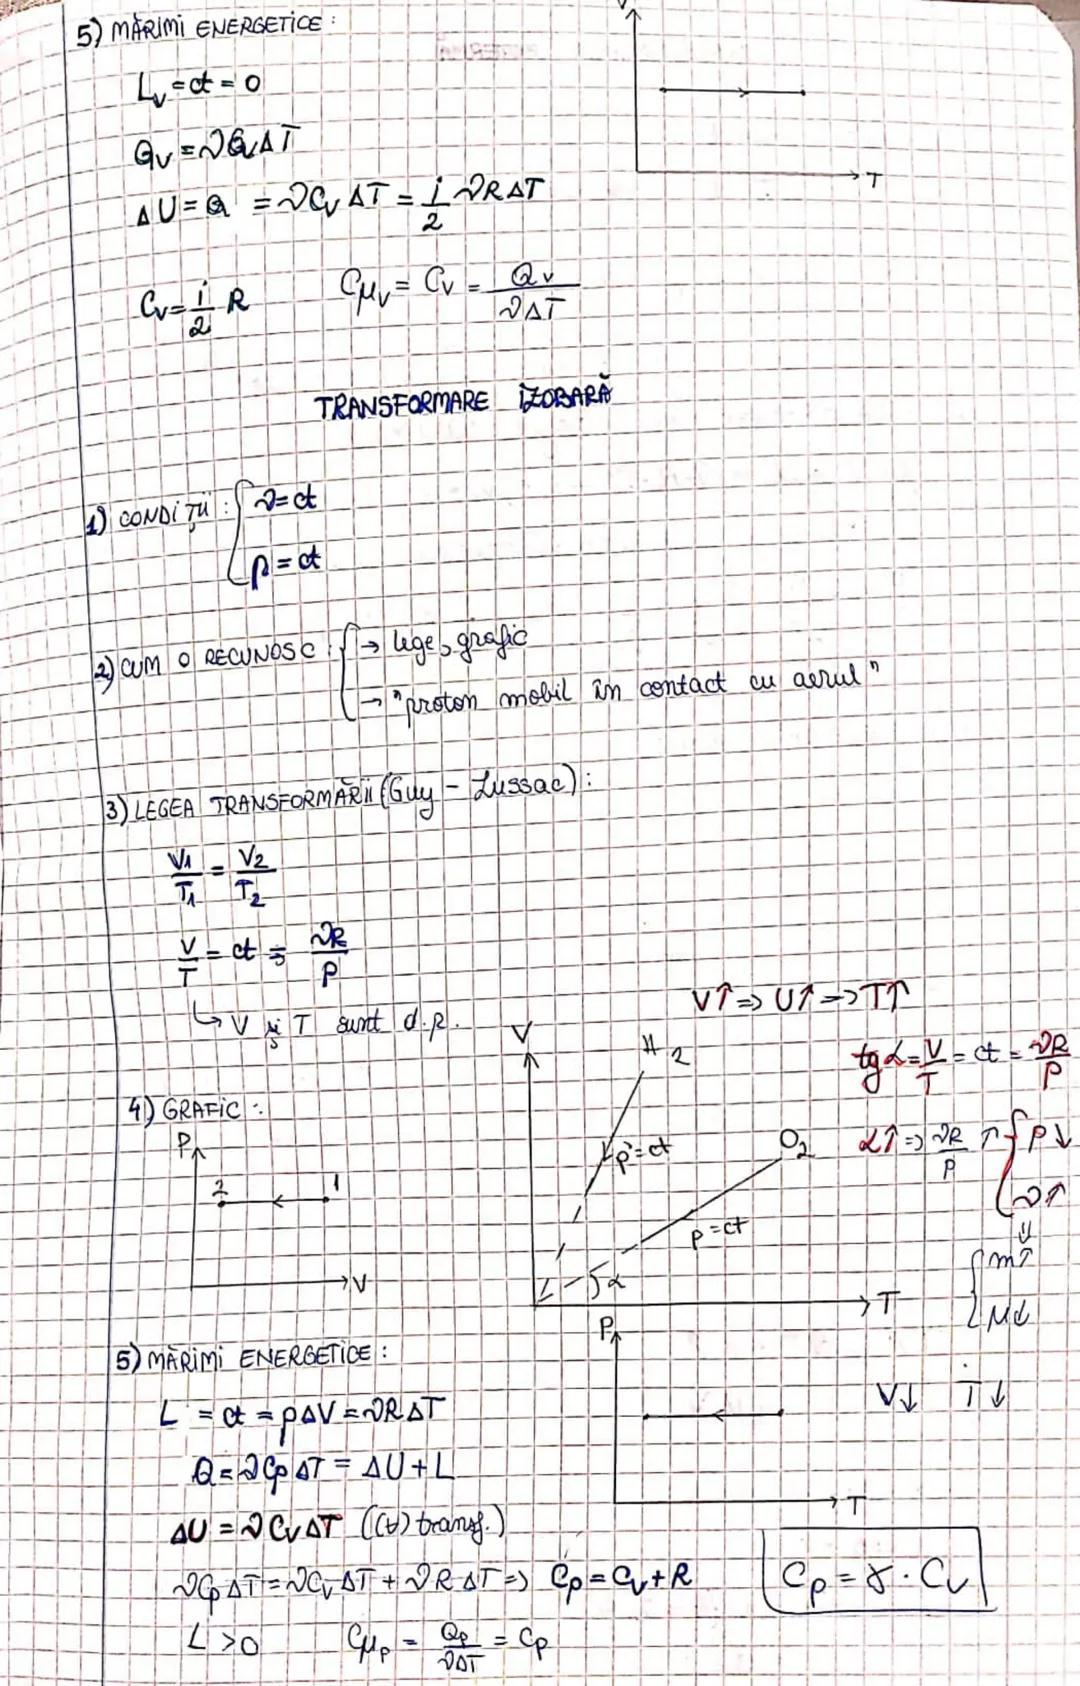 5) MĂRIMI ENERGETICE:
V
T
Lv = ct = 0
Qv = νCvΔT
ΔU = Q = νCvΔT = i/2 νRΔT
Cv = i/2 R
Cμv = Cv = Qv/νΔT
TRANSFORMARE IZOBARĂ
1) CONDIȚII: { ν = ct
p = ct
2) CUM O RECUNOSC: { → lege, grafic
→ "proton mobil în contact cu aerul"
3) LEGEA TRANSFORMĂRII (Guy - Lussac):
V1/T1 = V2/T2
V/T = ct = νR/p
↳ V și T sunt d.p.
V↑ ⇒ U↑ ⇒ T↑
tg α = V/T = ct = νR/p
α↑ ⇒ νR/p ↑ { p↓
ν↑
⇓
{ m↑
μ↓
4) GRAFIC:
P
2 1
V
V
H2
p = ct
O2
p = ct
α
T
P
V↓ T↓
T
5) MĂRIMI ENERGETICE:
L = ct = pΔV = νRΔT
Q = νCpΔT = ΔU + L
ΔU = νCvΔT ((∀) transf.)
νCpΔT = νCvΔT + νRΔT ⇒ Cp = Cv + R
Cp = γ · Cv
L > 0
Cμp = Qp/νΔT = Cp